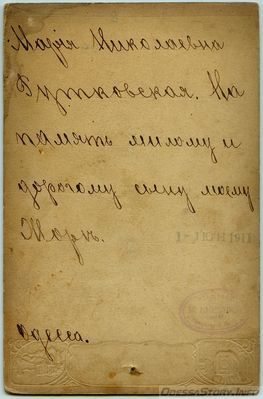 Марія Николаевна
Гутковская. На
память милому и
дорогому сыну моему
Жоржъ.
Одесса.
OdessaStory.Info